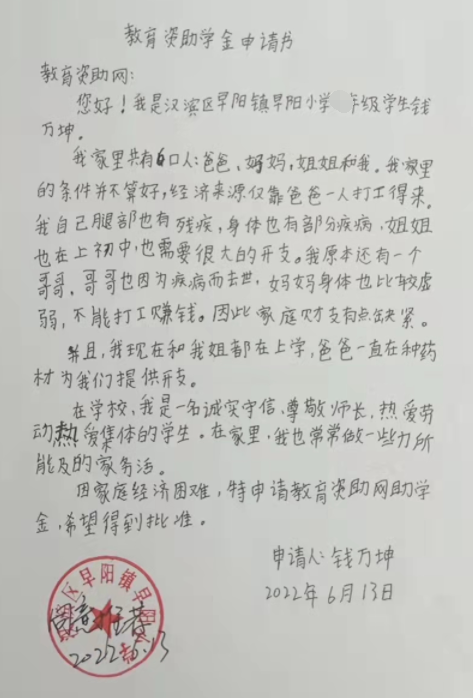 教育资助学金申请书
教育资助网:
您好！我是汉滨区早阳镇早阳小学 年级学生钱
万坤。
我家里共有口人:爸爸、妈妈,姐姐和我。我家里
的条件并不算好,经济来源仅靠爸爸一人打工得来。
我自己腿部也有残疾,身体也有部分疾病,姐姐
也在上初中,也需要很大的开支。我原本还有一个
哥哥、哥哥也因为疾病而去世,妈妈身体也比较虚
弱,不能打工赚钱。因此家庭财支有点缺紧。
并且,我现在和我姐都在上学,爸爸一直在种药
材为我们提供开支。
在学校,我是一名诚实守信、尊敬师长,热爱劳
动热爱集体的学生。在家里,我也常常做一些力所
能及的家务活。
因家庭经济困难,特申请教育资助网助学
金,希望得到批准。
申请人:钱万坤
2022年6月13日
区早阳镇早阳
同意推荐
2022.6.13